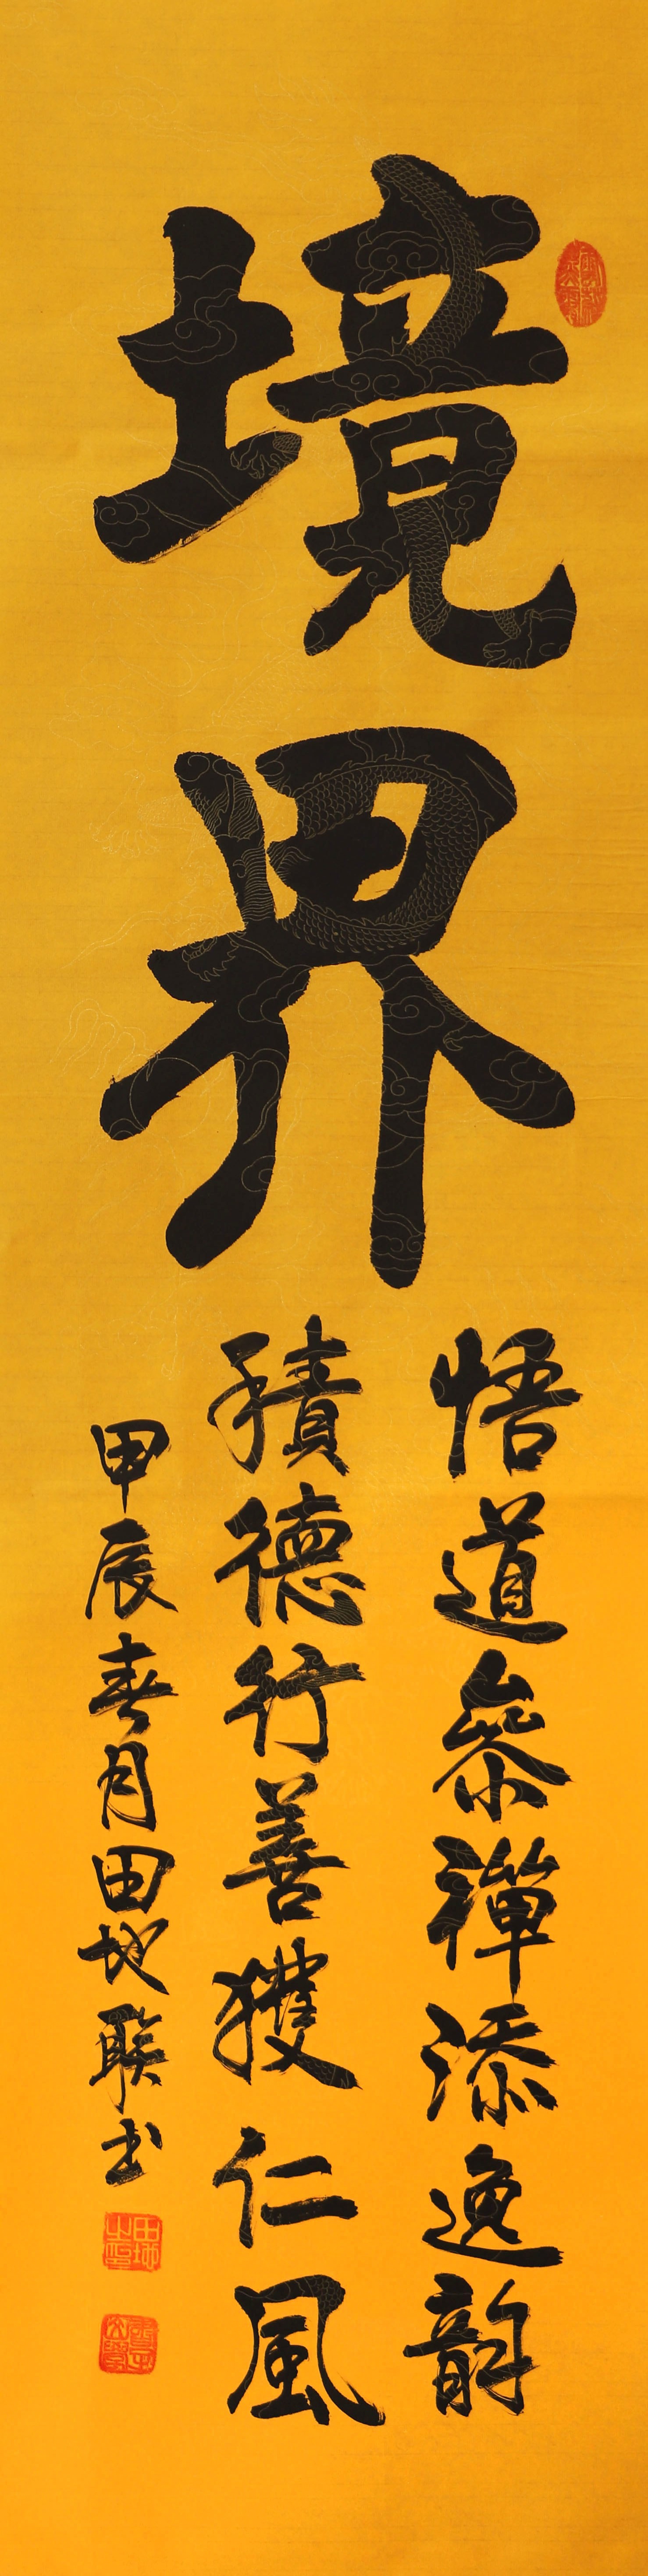 境界
悟道參禪添逸韵
積德行善獲仁風
甲辰春月田地联书